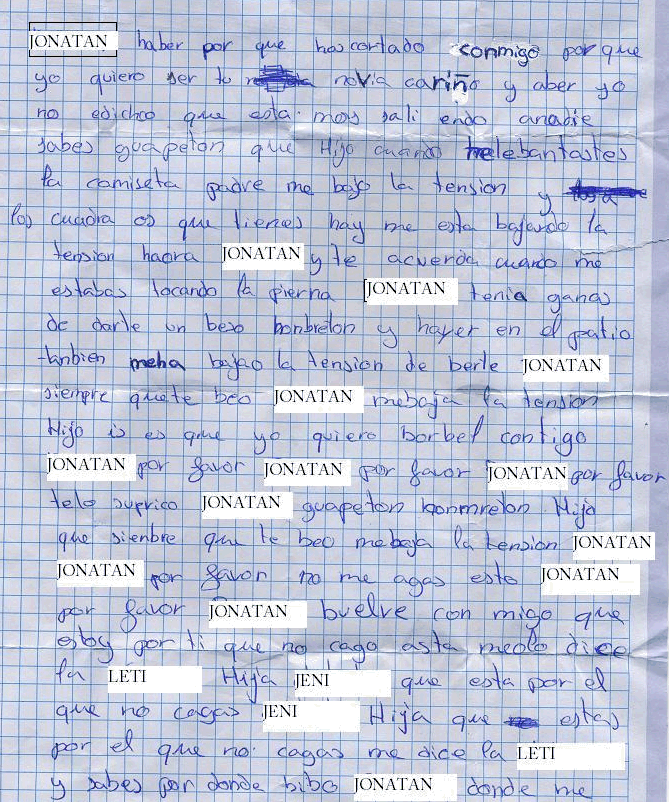 JONATAN haber por que hascortado conmigo por que
yo quiero ser tu novia cariño y aber yo
no edichoo que esta mos sali endo anadie
sabes guapeton que Hijo cuando telebantastes
la camiseta padre me bajo la tension y
los cuadra os que tienes hay me esta bajando la
tension haora JONATAN y te acuerda cuando me
estabas tocando la pierna JONATAN tenia ganas
de darte un beso honbreton y hayer en el patio
tanbien meha bajao la tension de berte JONATAN
siempre quete beo JONATAN mebaja la tension
Hijo is es que yo quiero borbel contigo
JONATAN por favor JONATAN por favor JONATAN por favor
telo suprico JONATAN guapeton honmreton Hijo
que sienbre que te beo mebaja la tension JONATAN
JONATAN por favor no me agas esto JONATAN
por favor JONATAN buelve con migo que
estoy por ti que no cago asta medo dice
la LETI Hija JENI que esta por el
que no cagas JENI Hija que estas
por el que no cagas me dice la LETI
y sabes por donde bibo JONATAN donde me